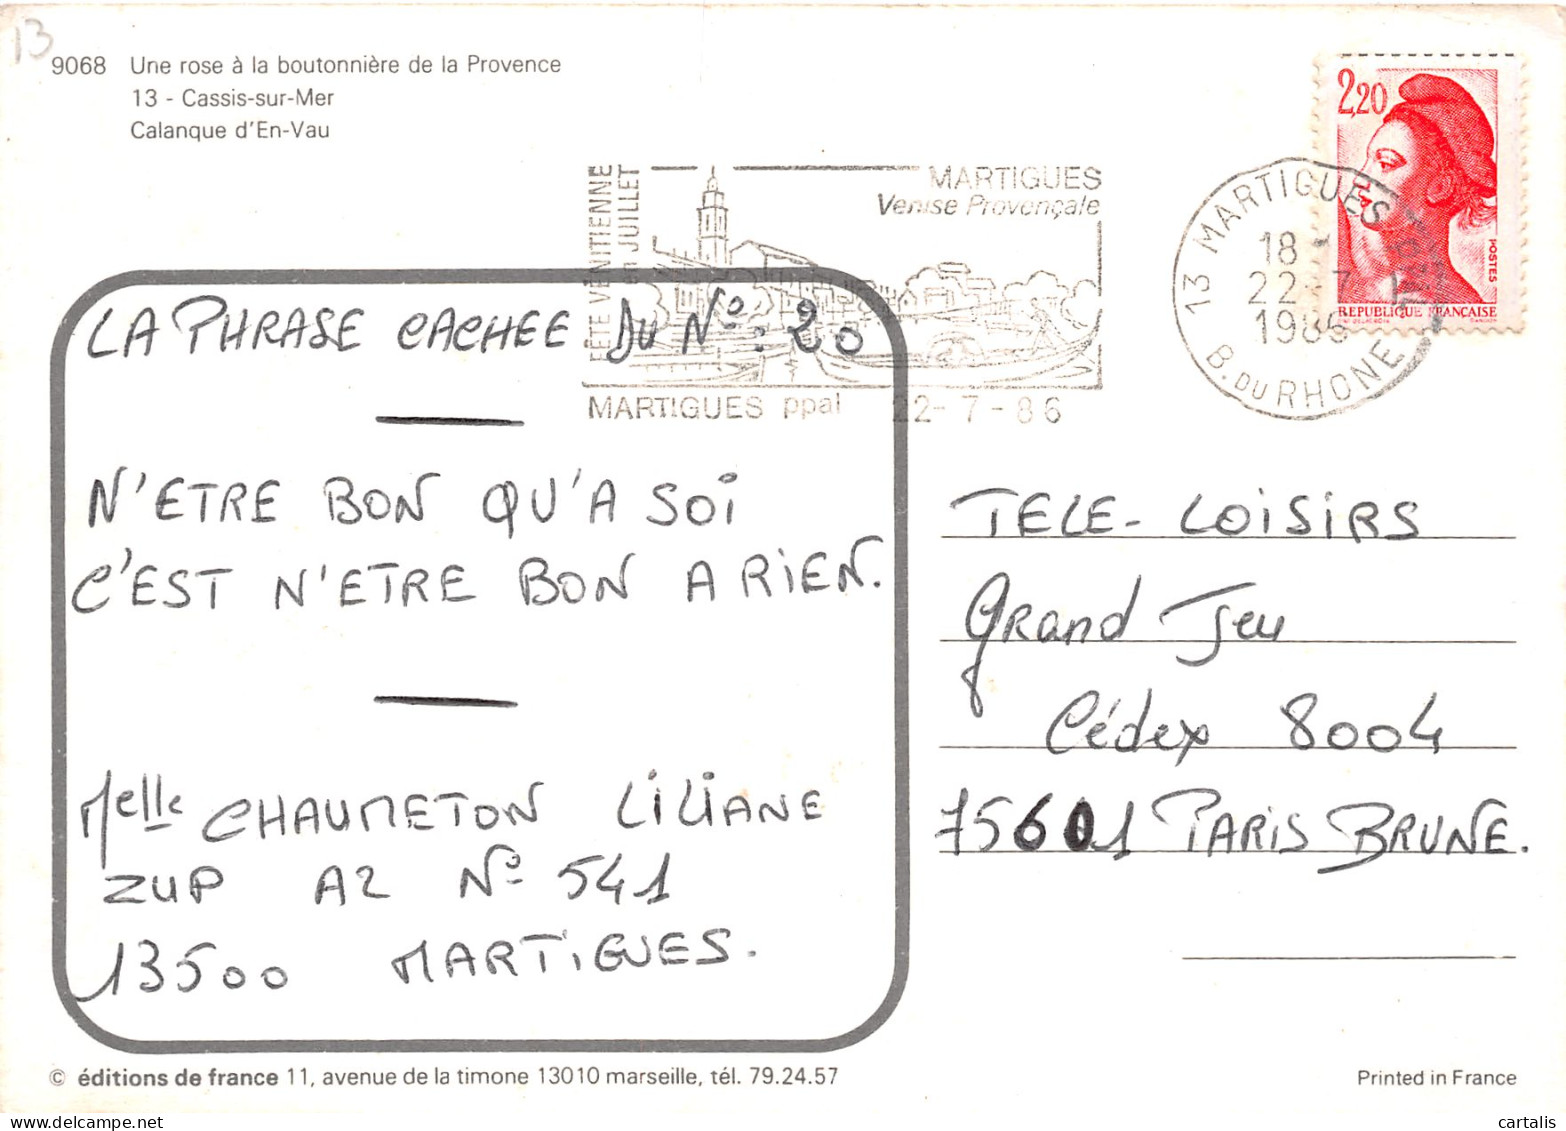 13
9068 Une rose à la boutonnière de la Provence
13 - Cassis-sur-Mer
Calanque d'En-Vau
2,20
POSTES
REPUBLIQUE FRANÇAISE
FÊTE VENITIENNE
en JUILLET
MARTIGUES
Venise Provençale
MARTIGUES ppal 22-7-86
13 MARTIGUES
18
22-7
1986
B. DU RHONE
LA PHRASE CACHEE DU N°: 20
N'ETRE BON QU'A SOI
C'EST N'ETRE BON A RIEN.
Melle CHAUMETON LILIANE
ZUP A2 N° 541
13500 MARTIGUES.
TELE-LOISIRS
Grand Jeu
Cédex 8004
75601 PARIS BRUNE.
© éditions de france 11, avenue de la timone 13010 marseille, tél. 79.24.57
Printed in France
cartalis